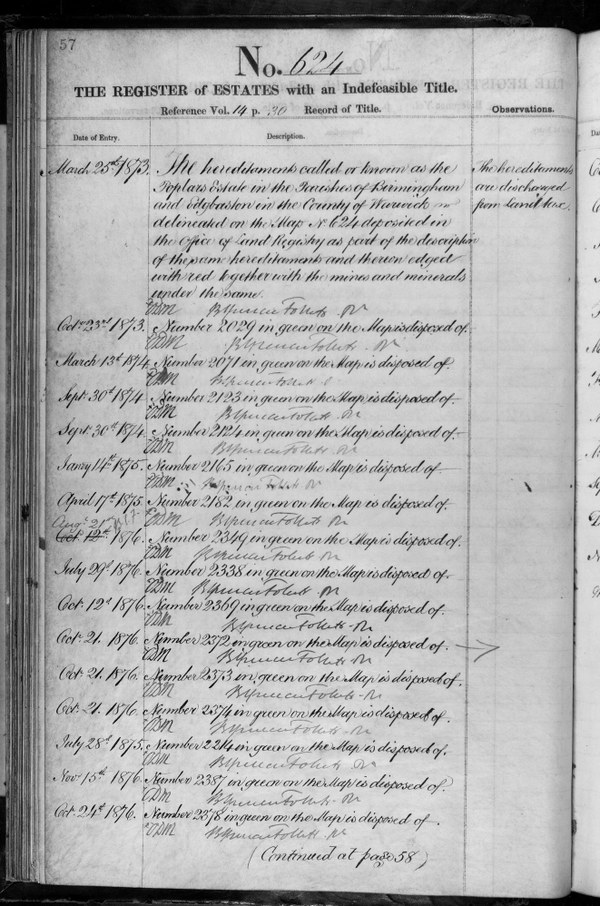 57
No. 624
THE REGISTER of ESTATES with an Indefeasible Title.
Reference Vol. 14 p. 30 Record of Title.
Observations.
Date of Entry.
Description.
March 25th 1873. The hereditaments called or known as the
Poplars Estate in the Parishes of Birmingham
and Edgbaston in the County of Warwick
delineated on the Map No 624 deposited in
the Office of Land Registry as part of the description
of the same hereditaments and thereon edged
with red together with the mines and minerals
under the same.
The hereditaments
are discharged
from Land tax.
Octr 23rd 1873. Number 2029 in green on the Map is disposed of.
March 13th 1874. Number 2071 in green on the Map is disposed of.
Septr 30th 1874. Number 2123 in green on the Map is disposed of.
Septr 30th 1874. Number 2124 in green on the Map is disposed of.
Janry 14th 1875. Number 2165 in green on the Map is disposed of.
April 17th 1875. Number 2182 in green on the Map is disposed of.
Augt 21
Oct 12th 1876. Number 2349 in green on the Map is disposed of.
July 29th 1876. Number 2338 in green on the Map is disposed of.
Oct 12th 1876. Number 2369 in green on the Map is disposed of.
Oct 21. 1876. Number 2372 in green on the Map is disposed of.
Oct 21. 1876. Number 2373 in green on the Map is disposed of.
Oct 21. 1876. Number 2374 in green on the Map is disposed of.
July 28th 1875. Number 2214 in green on the Map is disposed of.
Novr 15th 1876. Number 2387 in green on the Map is disposed of.
Oct 24th 1876. Number 2378 in green on the Map is disposed of.
(Continued at page 58)